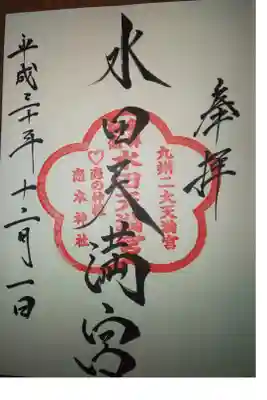 奉拝
九州二大天満宮
水田天満宮
恋の神社
恋木神社
平成三十年十二月一日